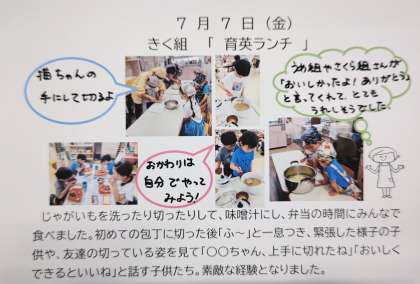 7月7日（金）
きく組　「 育英ランチ 」
猫ちゃんの
手にして切るよ
うめ組やさくら組さんが
「おいしかったよ！ありがとう」
と言ってくれて、とても
うれしそうでした。
おかわりは
自分でやって
みよう！
じゃがいもを洗ったり切ったりして、味噌汁にし、弁当の時間にみんなで
食べました。初めての包丁に切った後「ふ～」と一息つき、緊張した様子の子
供や、友達の切っている姿を見て「〇〇ちゃん、上手に切れたね」「おいしく
できるといいね」と話す子供たち。素敵な経験となりました。